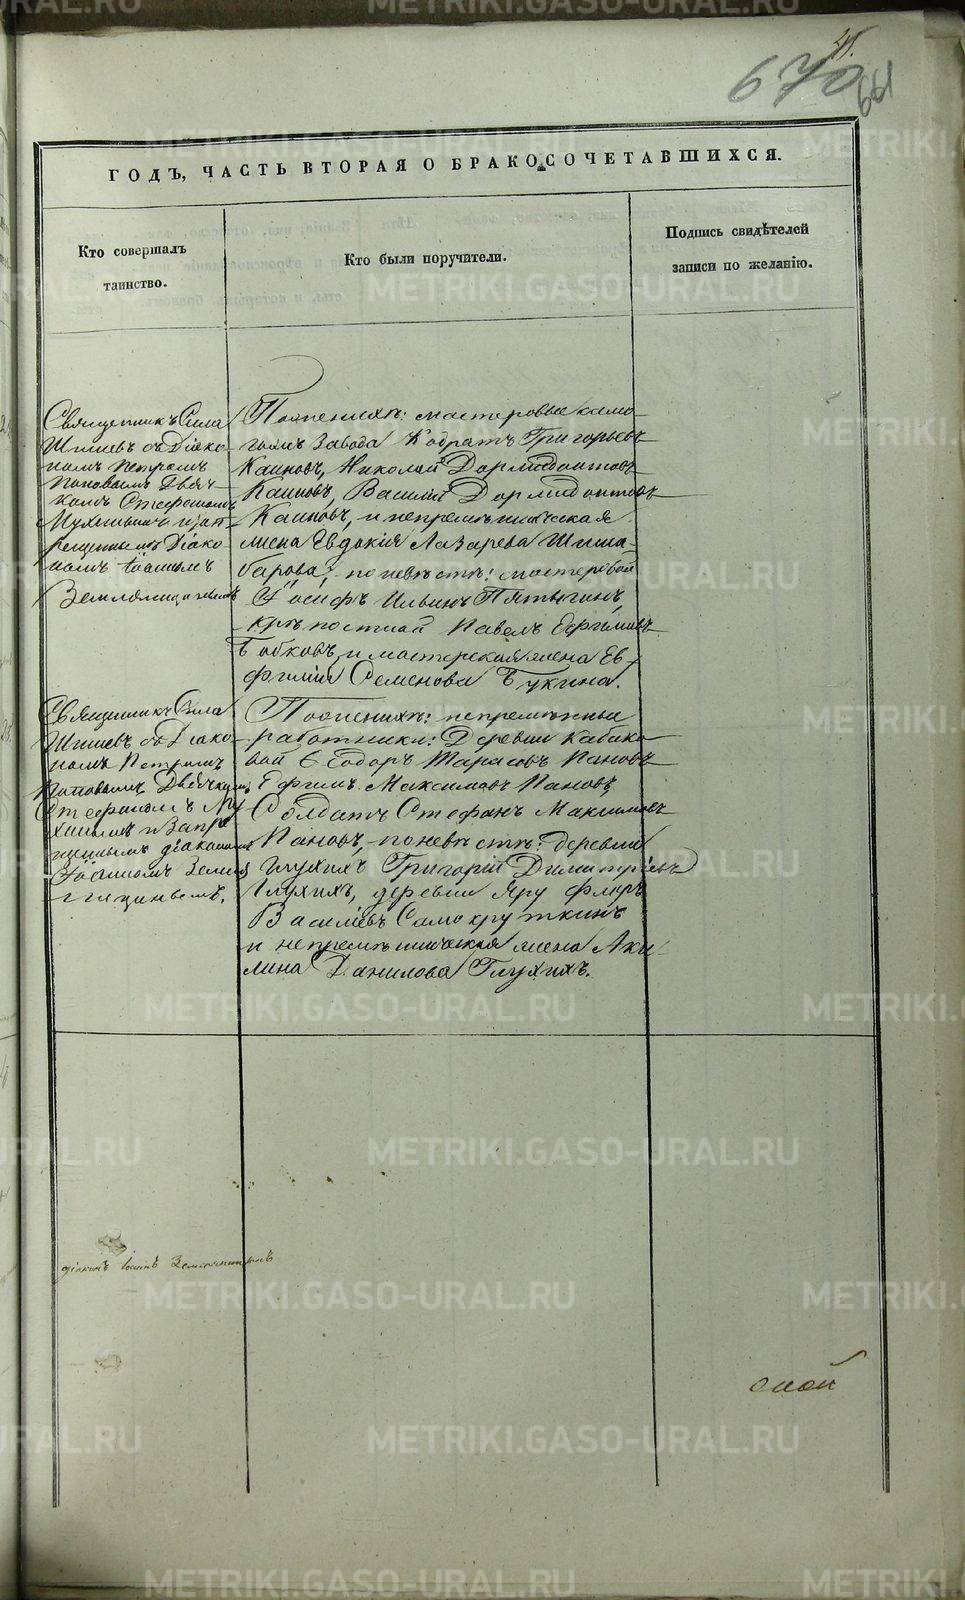 45.
670
661
ГОДЪ, ЧАСТЬ ВТОРАЯ О БРАКОСОЧЕТАВШИХСЯ.
Кто совершалъ
таинство.
Кто были поручители.
Подпись свидѣтелей
записи по желанію.
Священникъ Сила
Шишевъ съ Діако-
номъ Петромъ
Поповымъ Дьяч-
комъ Стефаномъ
и зап-
рещеннымъ Діако-
номъ Іоанномъ
Землянициным
По женихѣ: мастеровые
завода Григорьевъ
Каиновъ, Николай Дормидонтовъ
Каиновъ, Василий Дормидонтовъ
Каиновъ, и непремѣнническая
жена Евдокія Лазарева Шиша-
барова; по невѣстѣ: мастеровой
Іосифъ Ильинъ Пятыгинъ,
крѣпостной Павелъ Ефимовъ
Бобковъ, и мастерская жена Ев-
фимія Семенова Букина.
Священникъ Сила
Шишевъ съ Діако-
номъ Петромъ
Поповымъ Дьячкомъ
Стефаномъ Му
и Запре
щеннымъ діакономъ
Іоанномъ Земля
ницинымъ.
По женихѣ: непремѣнные
работники: Деревни Кабако-
вой Ѳеодоръ Тарасовъ Пановъ
Ефимъ Максимовъ Пановъ,
Солдатъ Стефанъ Максимовъ
Пановъ, по невѣстѣ: деревни
Глухихъ Григорій Димитріевъ
Глухихъ, деревни Яру Флоръ
Василіевъ Самокруткинъ
и непремѣнническая жена Аки-
лина Данилова Глухихъ.
діаконъ Іоаннъ Земляницынъ
METRIKI.GASO-URAL.RU